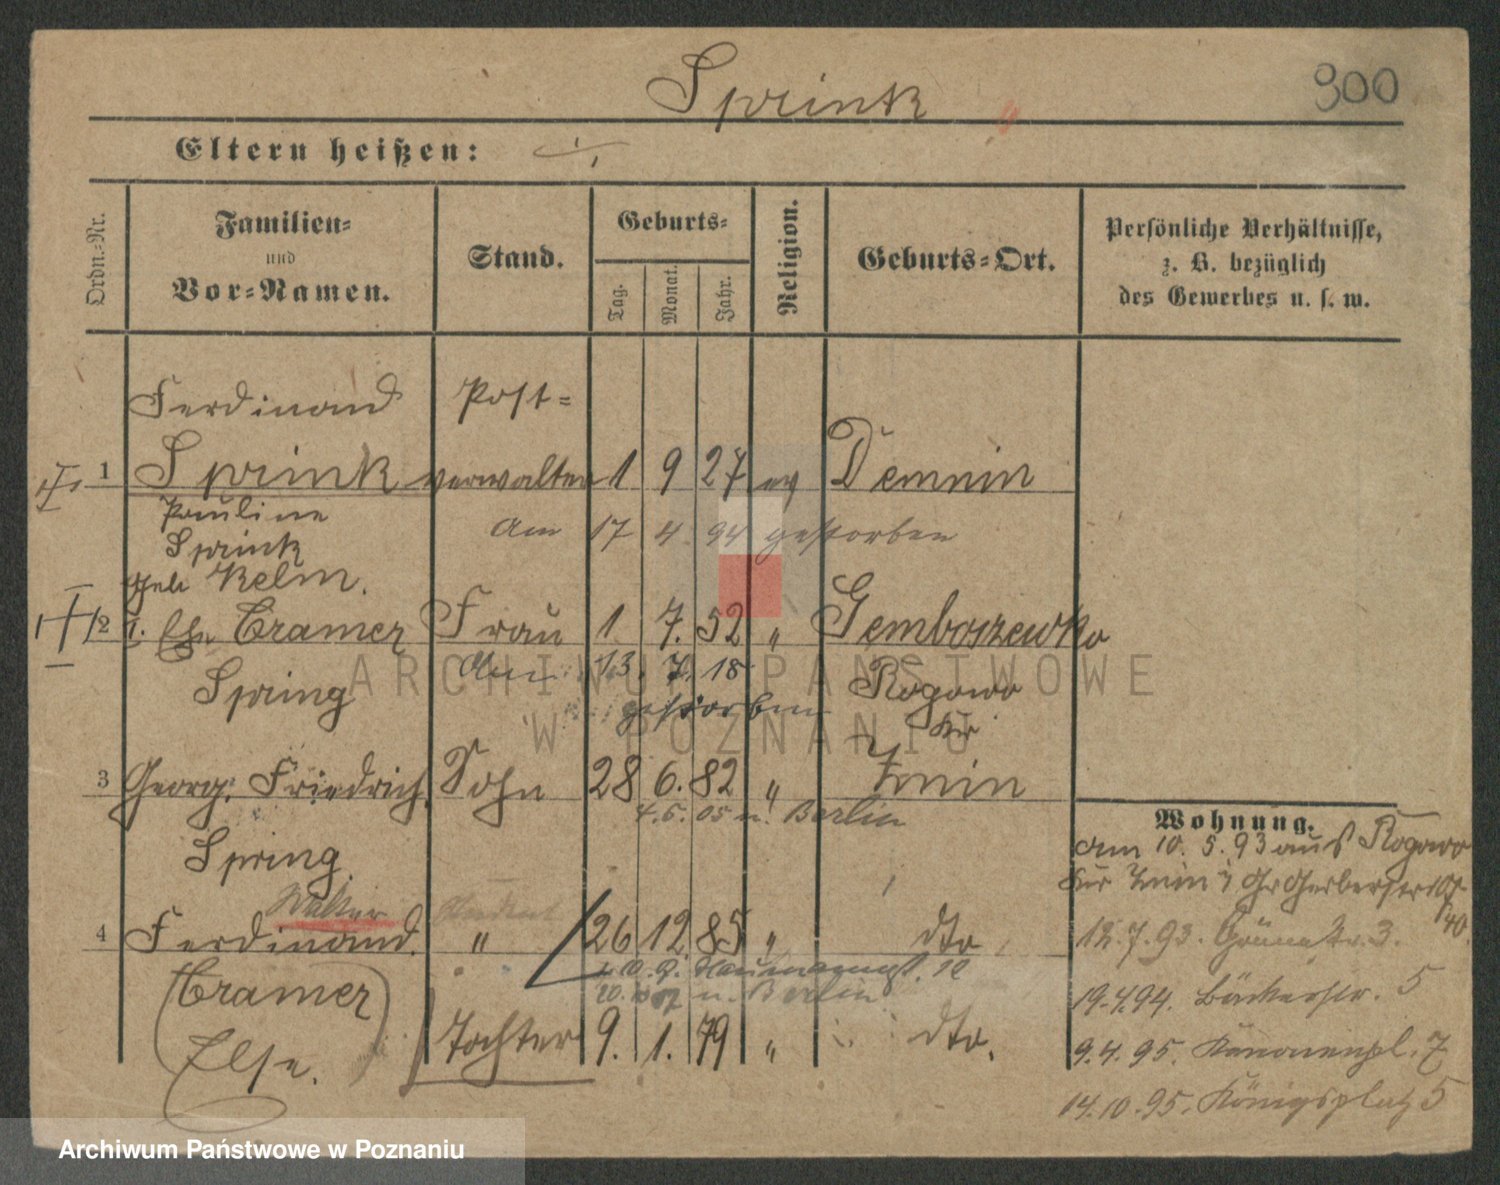 Sprink
900
Eltern heißen:
Ordn.-Nr.
Familien-
und
Vor-Namen.
Stand.
Geburts-
Tag.
Monat.
Jahr.
Religion.
Geburts-Ort.
Persönliche Verhältnisse,
z. B. bezüglich
des Gewerbes u. s. w.
Ferdinand Post-
1 Sprink verwalter 1 9 27 ev Demnin
Pauline
Am 17 4. 94 gestorben
Sprink
geb Kelm.
2 1. Ehe Cramer Frau 1. 7. 52 " Gemboszewko
Am 13. 7. 18 Rogowo
Spring gestorben Kr
3 Georg. Friedrich. Sohn 28 6. 82 " Znin
4.5.05 n. Berlin
Spring.
Walter Student
4 Ferdinand. " 26 12. 85 " dto
20. n. Berlin
(Cramer)
Else. Tochter 9. 1. 79 " dto.
Wohnung.
am 10. 5. 93 aus Rogowo
Kr Znin Gr Gerberstr
12. 7. 93. Grünestr. 3.
19.4.94. Bäckerstr. 5
9. 4. 95. Kanonenpl. 7
14. 10. 95. Königsplatz 5
ARCHIWUM PAŃSTWOWE
W POZNANIU
Archiwum Państwowe w Poznaniu